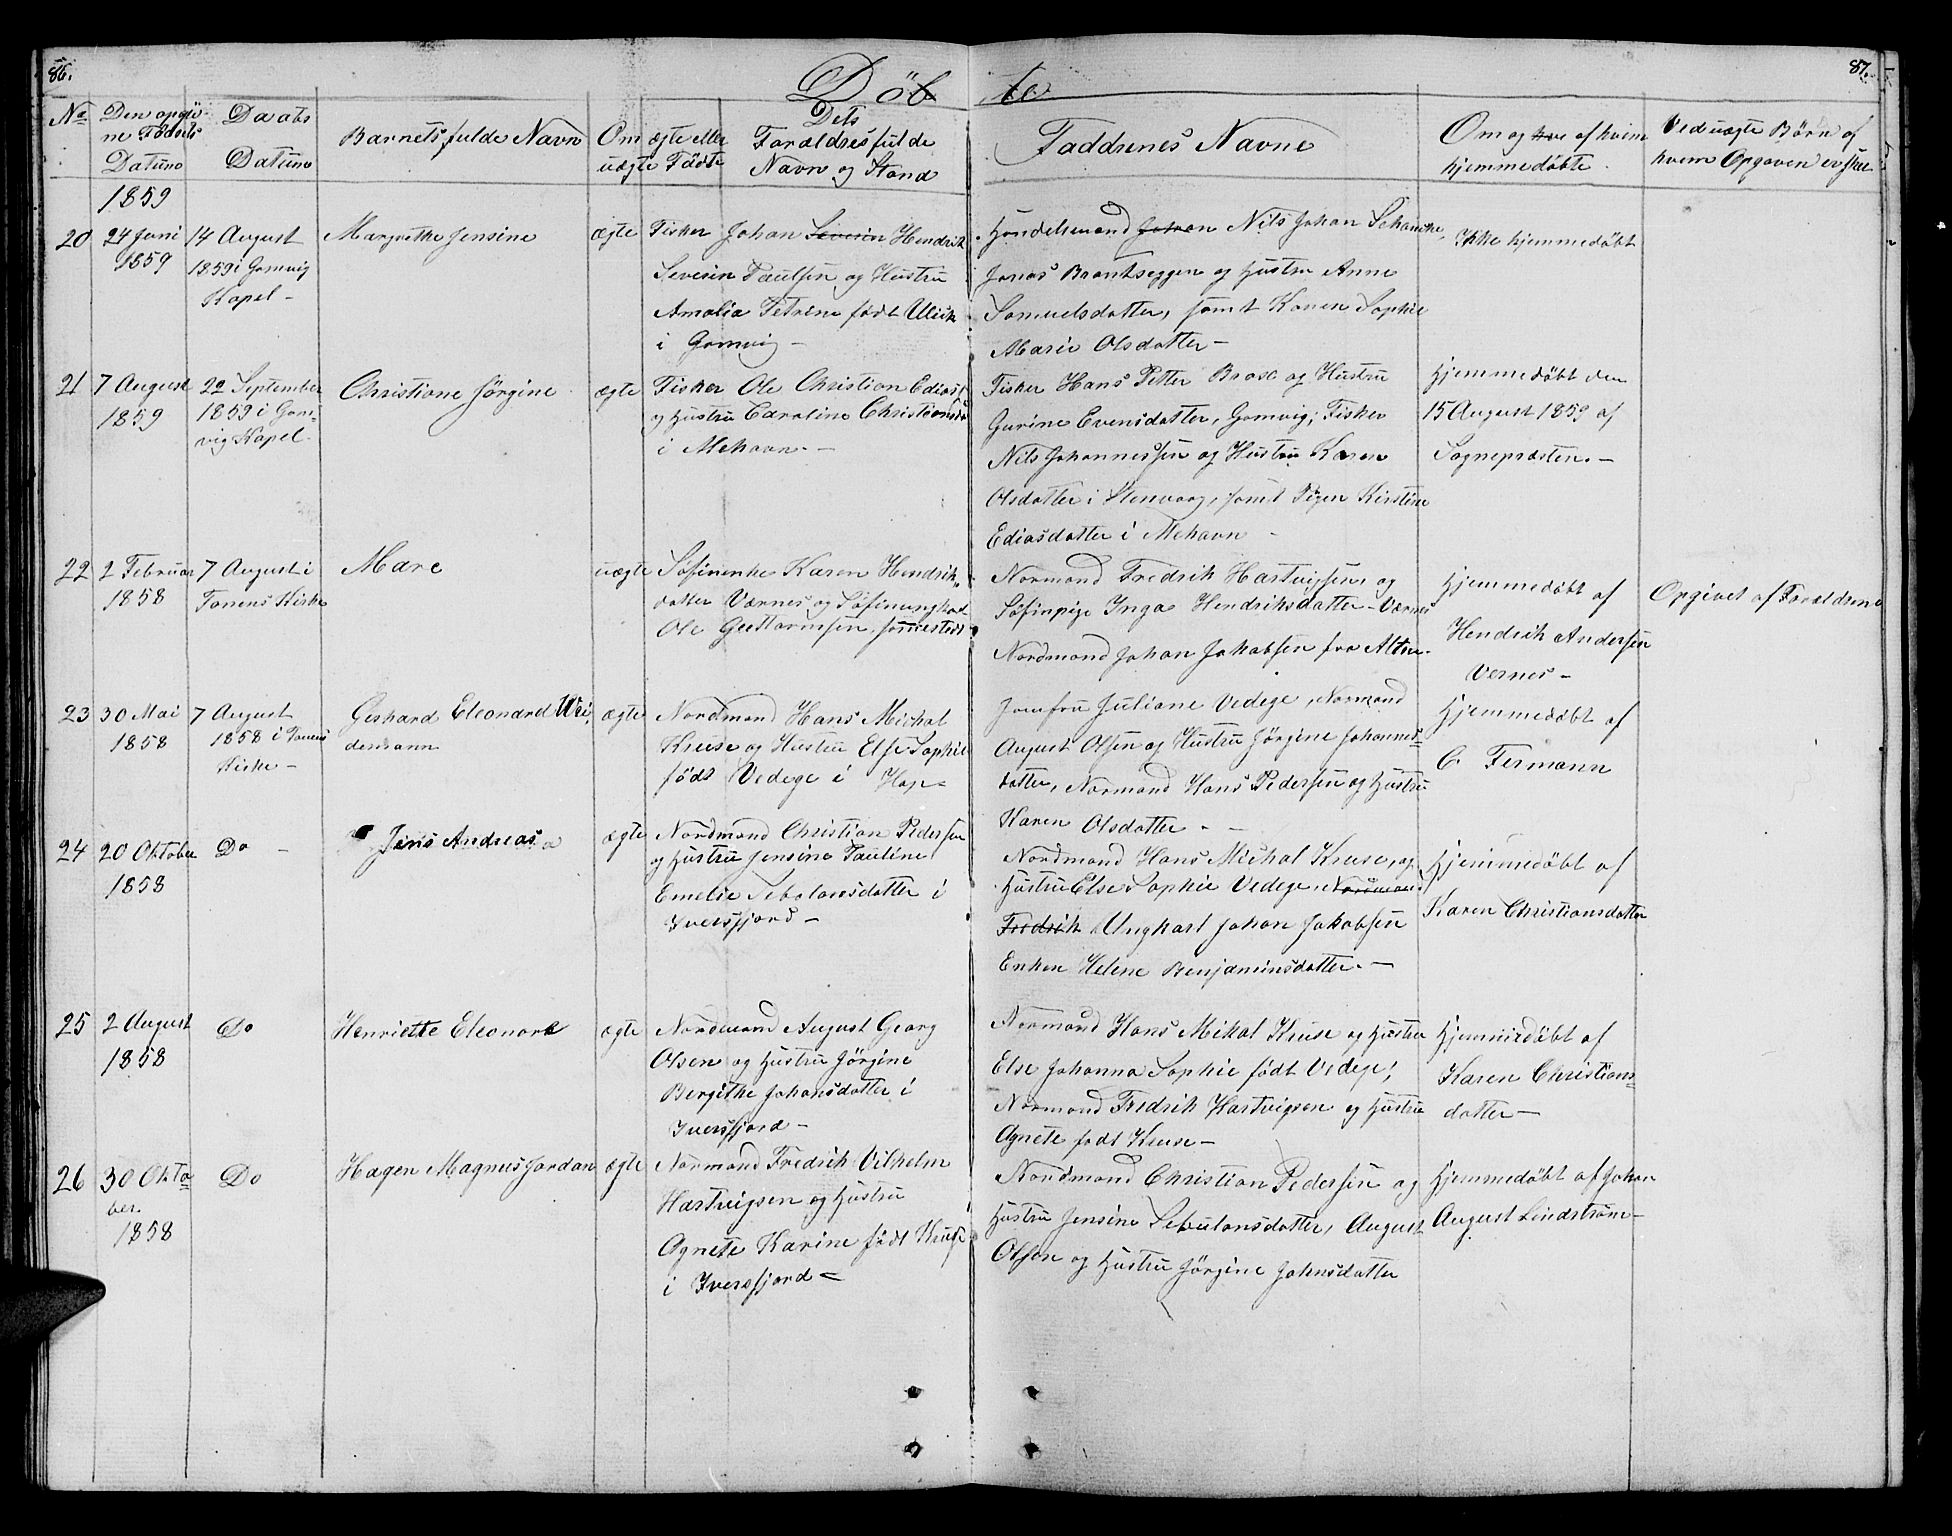 86.
87.
Döb te
No
Den opgivne Födsels Datum
Daabs Datum
Barnets fulde Navn
Om ægte eller uægte Födte
Dets Foraldres fulde Navn og Stand
Faddrenes Navne
Om og af hvem hjemmedöbte
Ved uægte Börn af hvem Opgaven er skee
1859
20
24 Juni
1859
14 August
1859 i Gamvig
Kapel -
Margrethe Jensine
ægte
Fisker Johan Severin Hendrik
Severin Paulsen og Hustru
Amalia Petrine födt Ulrik
i Gamvig -
Handelsmand Johan Nils Johan Schanche,
Jonas Brantseggen og Hustru Anne
Samuelsdatter, samt Karen Sophie
Marie Olsdatter -
Ikke hjemmedöbt
21
7 August
1859
22 September
1859 i Gam-
vig Kapel.
Christiane Jörgine
ægte
Fisker Ole Christian Edias
og Hustru Caroline Christiansd
i Mehavn. -
Fisker Hans Petter Brox og Hustru
Gurine Evensdatter, Gamvig; Fisker
Nils Johannessen og Hustru Karen
Olsdatter i Stenvaag, samt Pigen Kirstine
Ediasdatter i Mehavn -
Hjemmedöbt den
15 August 1859 af
Sognepræsten. -
22
2 Februar
1858
7 August i
Tanens Kirke
Mare
uægte
Karen Hendrik-
datter Værnes og
Ole
Normand Fredrik Hartvigsen og
Inga Hendriksdatter - Værnes
Nordmand Johan Jakobsen fra Alten -
Hjemmedöbt af
Hendrik Andersen
Vernes -
Opgivet af Foraldrene
23
30 Mai
1858
7 August
1858 i Tanens
Kirke -
Gerhard Eleonard Wei-
demann
ægte
Nordmand Hans Michal
Kruse og Hustru Else Sophie
födt Vedege i Hop -
Jomfru Juliane Vedege, Normand
August Olsen og Hustru Jörgine Johannes-
datter, Normand Hans Pedersen og Hustru
Karen Olsdatter. -
Hjemmedöbt af
C Fermann
24
20 Oktober
1858
Do -
Jens Andreas
ægte
Nordmand Christian Pedersen
og Hustru Jensine Pauline
Emelie Sebulonsdatter i
Iversfjord -
Nordmand Hans Michal Kruse, og
Hustru Else Sophie Vedege, Nordmand
Fredrik Ungkarl Johan Jakobsen
Enken Helene Benjaminsdatter. -
Hjemmedöbt af
Karen Christiansdatter
25
2 August
1858
Do
Henriette Eleonore
ægte
Nordmand August Georg
Olsen og Hustru Jörgine
Bergithe Johansdatter i
Iversfjord -
Normand Hans Mikal Kruse og Hustru
Else Johanna Sophie födt Vedege;
Normand Fredrik Hartvigsen og Hustru
Agnete födt Kruse -
Hjemmedöbt af
Karen Christians-
datter -
26
30 Okto-
ber
1858
Do
Hagen Magnus Jordan
ægte
Normand Fredrik Vilhelm
Hartvigsen og Hustru
Agnete Karine födt Kruse
i Iversfjord -
Nordmand Christian Pedersen og
Hustru Jensine Sebulonsdatter, August
Olsen og Hustru Jörgine Johnsdatter
Hjemmedöbt af Johan
August Lindström -